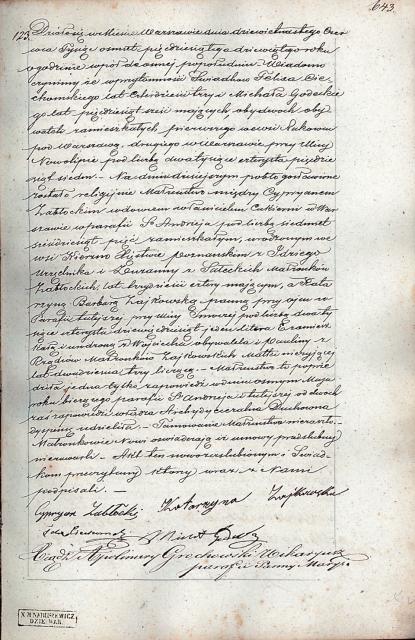 643.
123. Działo się w Mieście Warszawie dnia dziewiętnastego Czer
wca Tysiąc osmset pięćdziesiątego dziewiątego roku
o godzinie wpół do ósmej popołudniu. Wiadomo
czynimy że w przytomności Świadków Felixa Cie
chomskiego lat czterdzieści trzy i Michała Godec
kiego lat pięćdziesiąt sześć mających, obydwóch oby
wateli zamieszkałych pierwszego we wsi
pod Warszawą, drugiego w Warszawie przy Ulicy
Nowolipie pod liczbą dwa tysiące czterysta pięćdzie
siąt siedm. Na dniu dzisiejszym pobłogosławione
zostało religijne Małżeństwo między Cypryanem
Zabłockim wdowcem właścicielem w War
szawie w parafii Sgo Andrzeja pod liczbą siedmset
sześćdziesiąt pięć zamieszkałym, urodzonym we
wsi Xięstwie Poznańskim z Idziego
Urzędnika i Zuzanny z Małżonków
Zabłockich, lat trzydzieści cztery mającym, a Kata
rzyną Barbarą Zajkowską panną przy ojcu w
Parafii tutejszej przy Ulicy pod liczbą dwa ty
siące czterysta dziewięćdziesiąt jeden litera E zamiesz
kałą i urodzoną z Wojciecha obywatela i Pauliny z
Małżonków Zajkowskich Matki nieżyjącej
lat dwadzieścia trzy liczącą. Małżeństwo to poprze
dziła jedna tylko zapowiedź w dniu ósmym Maja
roku bieżącego parafii Sgo Andrzeja i tutejszej od dwóch
zaś zapowiedzi władza Archidyecezalna Duchowna
dyspensy udzieliła. Tamowanie Małżeństwa nie zaszło.
Małżonkowie Nowi oświadczają iż umowy przedślubnej
nie zawarli. Akt ten nowozaślubionym i Świad
kom przeczytany który wraz z Nami
podpisali.
Cypryan Zabłocki, Katarzyna Zajkowska
Xiądz Apolinary Grochowski Wikaryusz
parafii Panny Maryi
X. M. NARUSZEWICZ
DZIEKAN.